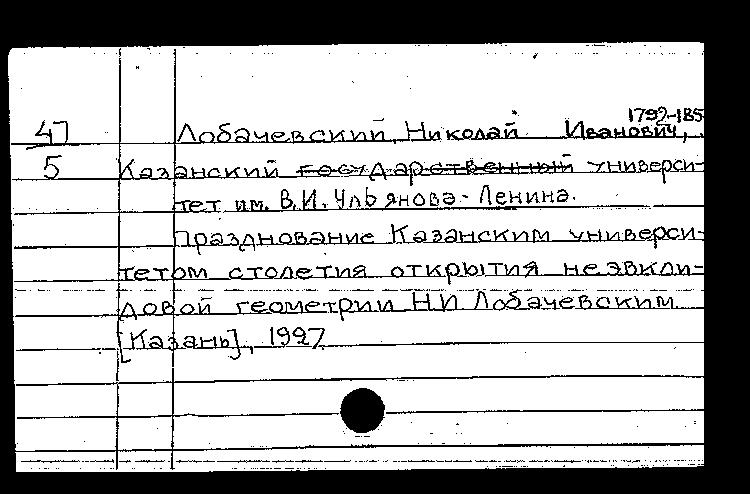 1792-185
47 Лобачевский, Николай Иванович,
5 Казанский государственный универси-
тет им. В.И. Ульянова-Ленина.
Празднование Казанским универси-
тетом столетия открытия неэвкли-
довой геометрии Н.И Лобачевским
[Казань], 1927